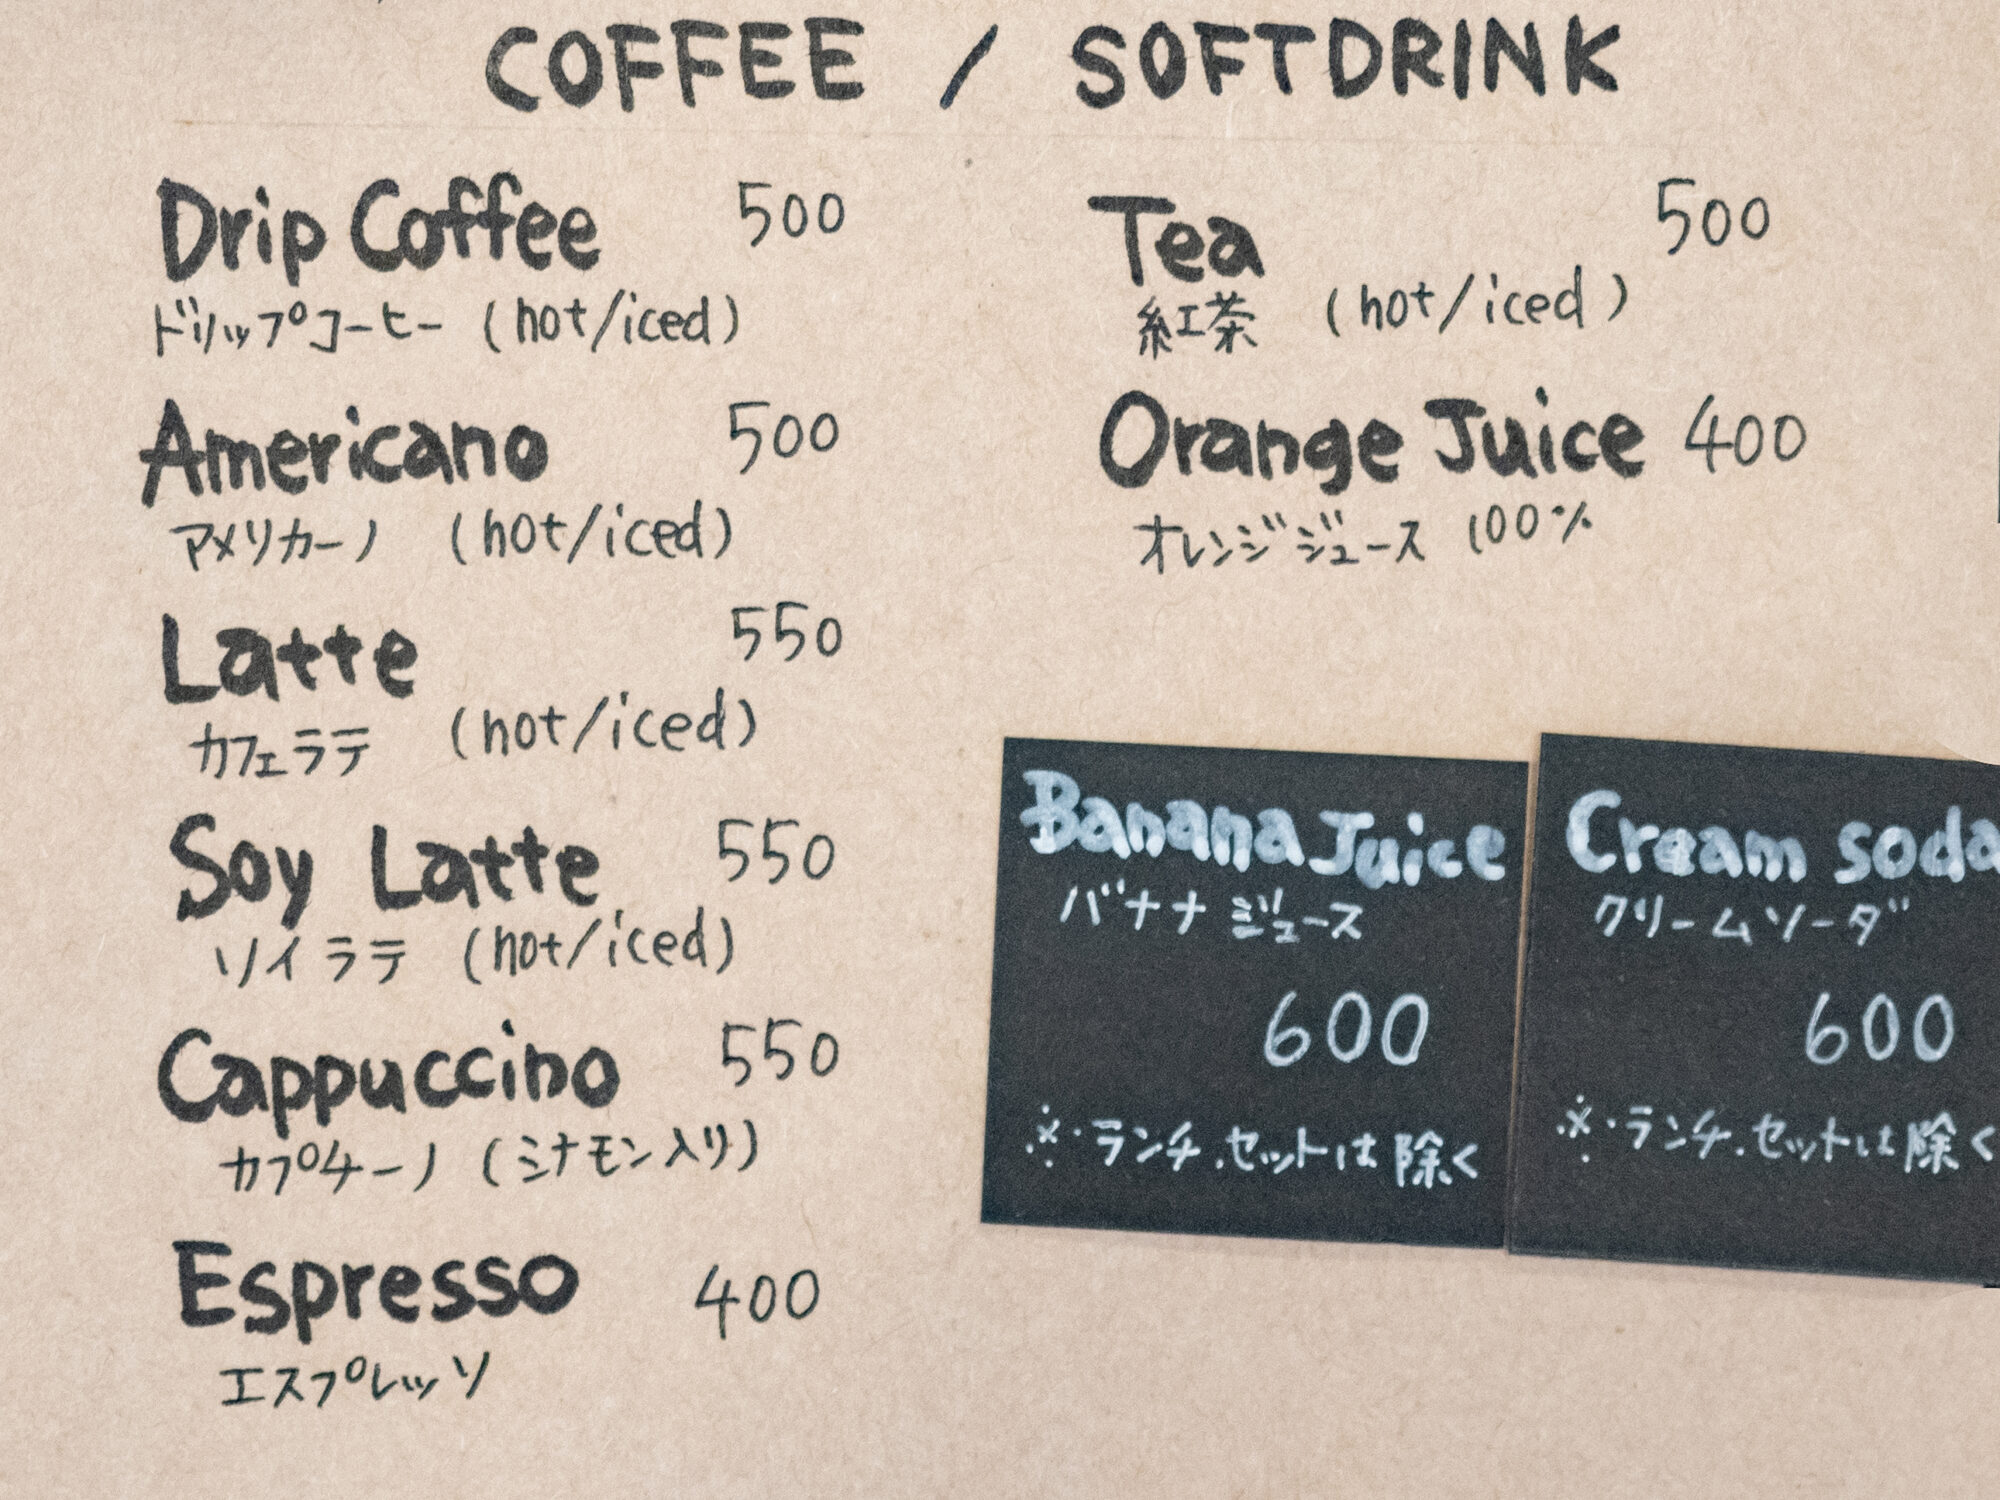 COFFEE / SOFTDRINK
Drip Coffee 500
ドリップコーヒー (hot/iced)
Americano 500
アメリカーノ (hot/iced)
Latte 550
カフェラテ (hot/iced)
Soy Latte 550
ソイラテ (hot/iced)
Cappuccino 550
カプチーノ (シナモン入り)
Espresso 400
エスプレッソ
Tea 500
紅茶 (hot/iced)
Orange Juice 400
オレンジジュース 100%
Banana Juice
バナナジュース
600
※・ランチ.セットは除く
Cream soda
クリームソーダ
600
※・ランチ.セットは除く